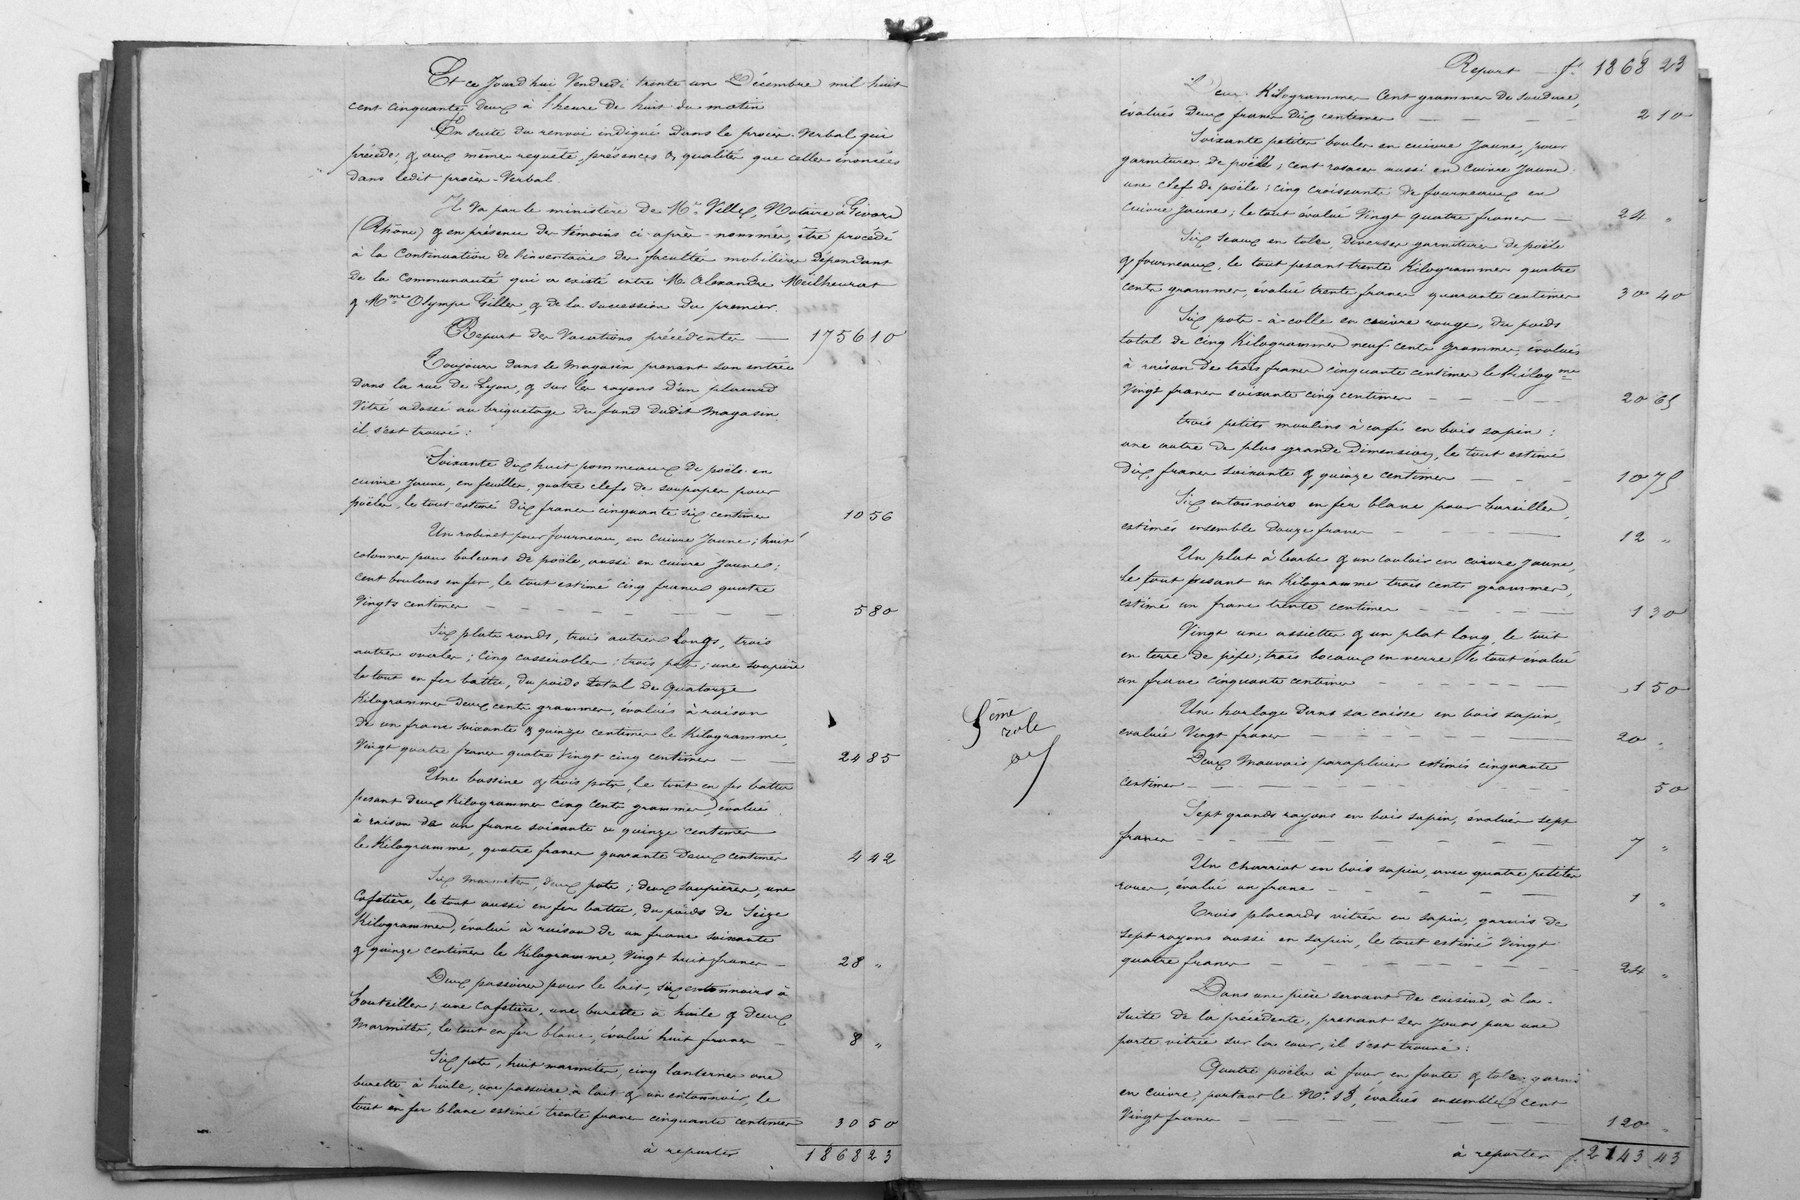 Et ce Jourd'hui Vendredi trente un Décembre mil huit
cent cinquante deux à l'heure de huit du matin
En suite du renvoi indiqué dans le procès-verbal qui
précède; & aux même requête, présences & qualités que celles énoncées
dans ledit procès-Verbal
Il va par le ministère de Me Villex, Notaire à Givors
(Rhône) & en présence des témoins ci-après-nommés, être procédé
à la Continuation de l'inventaire des facultés mobilières dépendant
de la Communauté qui a existé entre Mr Alexandre Meilheurat
& Mme Olympe Giller, & de la succession du premier.
Report des Vacations précédentes — 1756 10
Toujours dans le magasin prenant son entrée
dans la rue de Lyon, & sur les rayons d'un placard
Vitré adossé au briquetage du fond dudit magasin
il s'est trouvé :
Soixante dix huit pommeaux de poële en
cuivre jaune, en feuilles, quatre clefs de soupapes pour
poëles, le tout estimé dix francs cinquante six centimes 10 56
Un robinet pour fourneau, en cuivre jaune; huit
colonnes pour balcons de poële, aussi en cuivre jaune;
cent boulons en fer, le tout estimé cinq francs quatre
Vingts centimes — — — — — — 5 80
Six plats ronds, trois autres longs, trois
autres ovales; cinq casseroles; trois pots; une soupière
le tout en fer battu, du poids total de quatorze
Kilogrammes deux cents grammes, évalués à raison
de un franc soixante & quinze centimes le Kilogramme,
Vingt quatre francs quatre Vingt cinq centimes — — 24 85
Une bassine & trois pots, le tout en fer battu
pesant deux Kilogrammes cinq cents grammes, évalué
à raison de un franc soixante & quinze centimes
le Kilogramme, quatre francs quarante deux centimes 4 42
Six marmites, deux pots; deux soupières, une
Cafetière, le tout aussi en fer battu, du poids de Seize
Kilogrammes, évalué à raison de un franc soixante
& quinze centimes le Kilogramme, Vingt huit francs — 28 "
Deux passoires pour le lait, six entonnoirs à
bouteilles; une cafetière, une burette à huile & deux
Marmittes, le tout en fer blanc, évalué huit francs — 8 "
Six pots, huit marmites, cinq lanternes une
burette à huile, une passoire à lait & un entonnoir, le
tout en fer blanc estimé trente francs cinquante centimes 30 50
à reporter 1868 23
5ème
rôle
Report — f. 1868 23
Deux Kilogrammes Cent grammes de soudure,
évalués Deux francs Dix centimes — — — — 2 10
Soixante petites boules en cuivre jaune, pour
garnitures de poële; cent rosaces aussi en cuivre jaune
une clef de poële; cinq croissants de fourneaux en
Cuivre jaune; le tout évalué Vingt quatre francs — 24 "
Six seaux en tole, diverses garnitures de poële
& fourneaux, le tout pesant trente Kilogrammes quatre
cents grammes, évalué trente francs quarante centimes 30 40
Six pots-à-colle en cuivre rouge, du poids
total de cinq Kilogrammes neuf cents grammes, évalués
à raison de trois francs cinquante centimes le Kilogme
Vingt francs soixante cinq centimes — — — — 20 65
trois petits moulins à café en bois sapin;
une autre de plus grande dimension, le tout estimé
dix francs soixante & quinze centimes — — — 10 75
Six entonnoirs en fer blanc pour bouteilles,
estimés ensemble douze francs — — — — 12 "
Un plat à barbe & un couloir en cuivre jaune,
le tout pesant un Kilogramme trois cents grammes,
estimé un franc trente centimes — — — — 1 30
Vingt une assiettes & un plat long, le tout
en terre de pipe; trois bocaux en verre, le tout évalué
un franc cinquante centimes — — — — — 1 50
Une horloge dans sa caisse en bois sapin,
évaluée Vingt francs — — — — — — 20 "
Deux mauvais parapluies estimés cinquante
centimes — — — — — — — — " 50
Sept grands rayons en bois sapin, évalués sept
francs — — — — — — — — 7 "
Un charriot en bois sapin, avec quatre petites
roues, évalué un franc — — — — — 1 "
Trois placards vitrés en sapin, garnis de
sept rayons aussi en sapin, le tout estimé Vingt
quatre francs — — — — — — — 24 "
Dans une pièce servant de cuisine, à la
suite de la précédente, prenant ses jours par une
porte vitrée sur la cour, il s'est trouvé :
Quatre poëles à four en fonte & tole, garnis
en cuivre, portant le No 13, évalués ensemble cent
Vingt francs — — — — — — — — 120 "
à reporter f. 2143 43